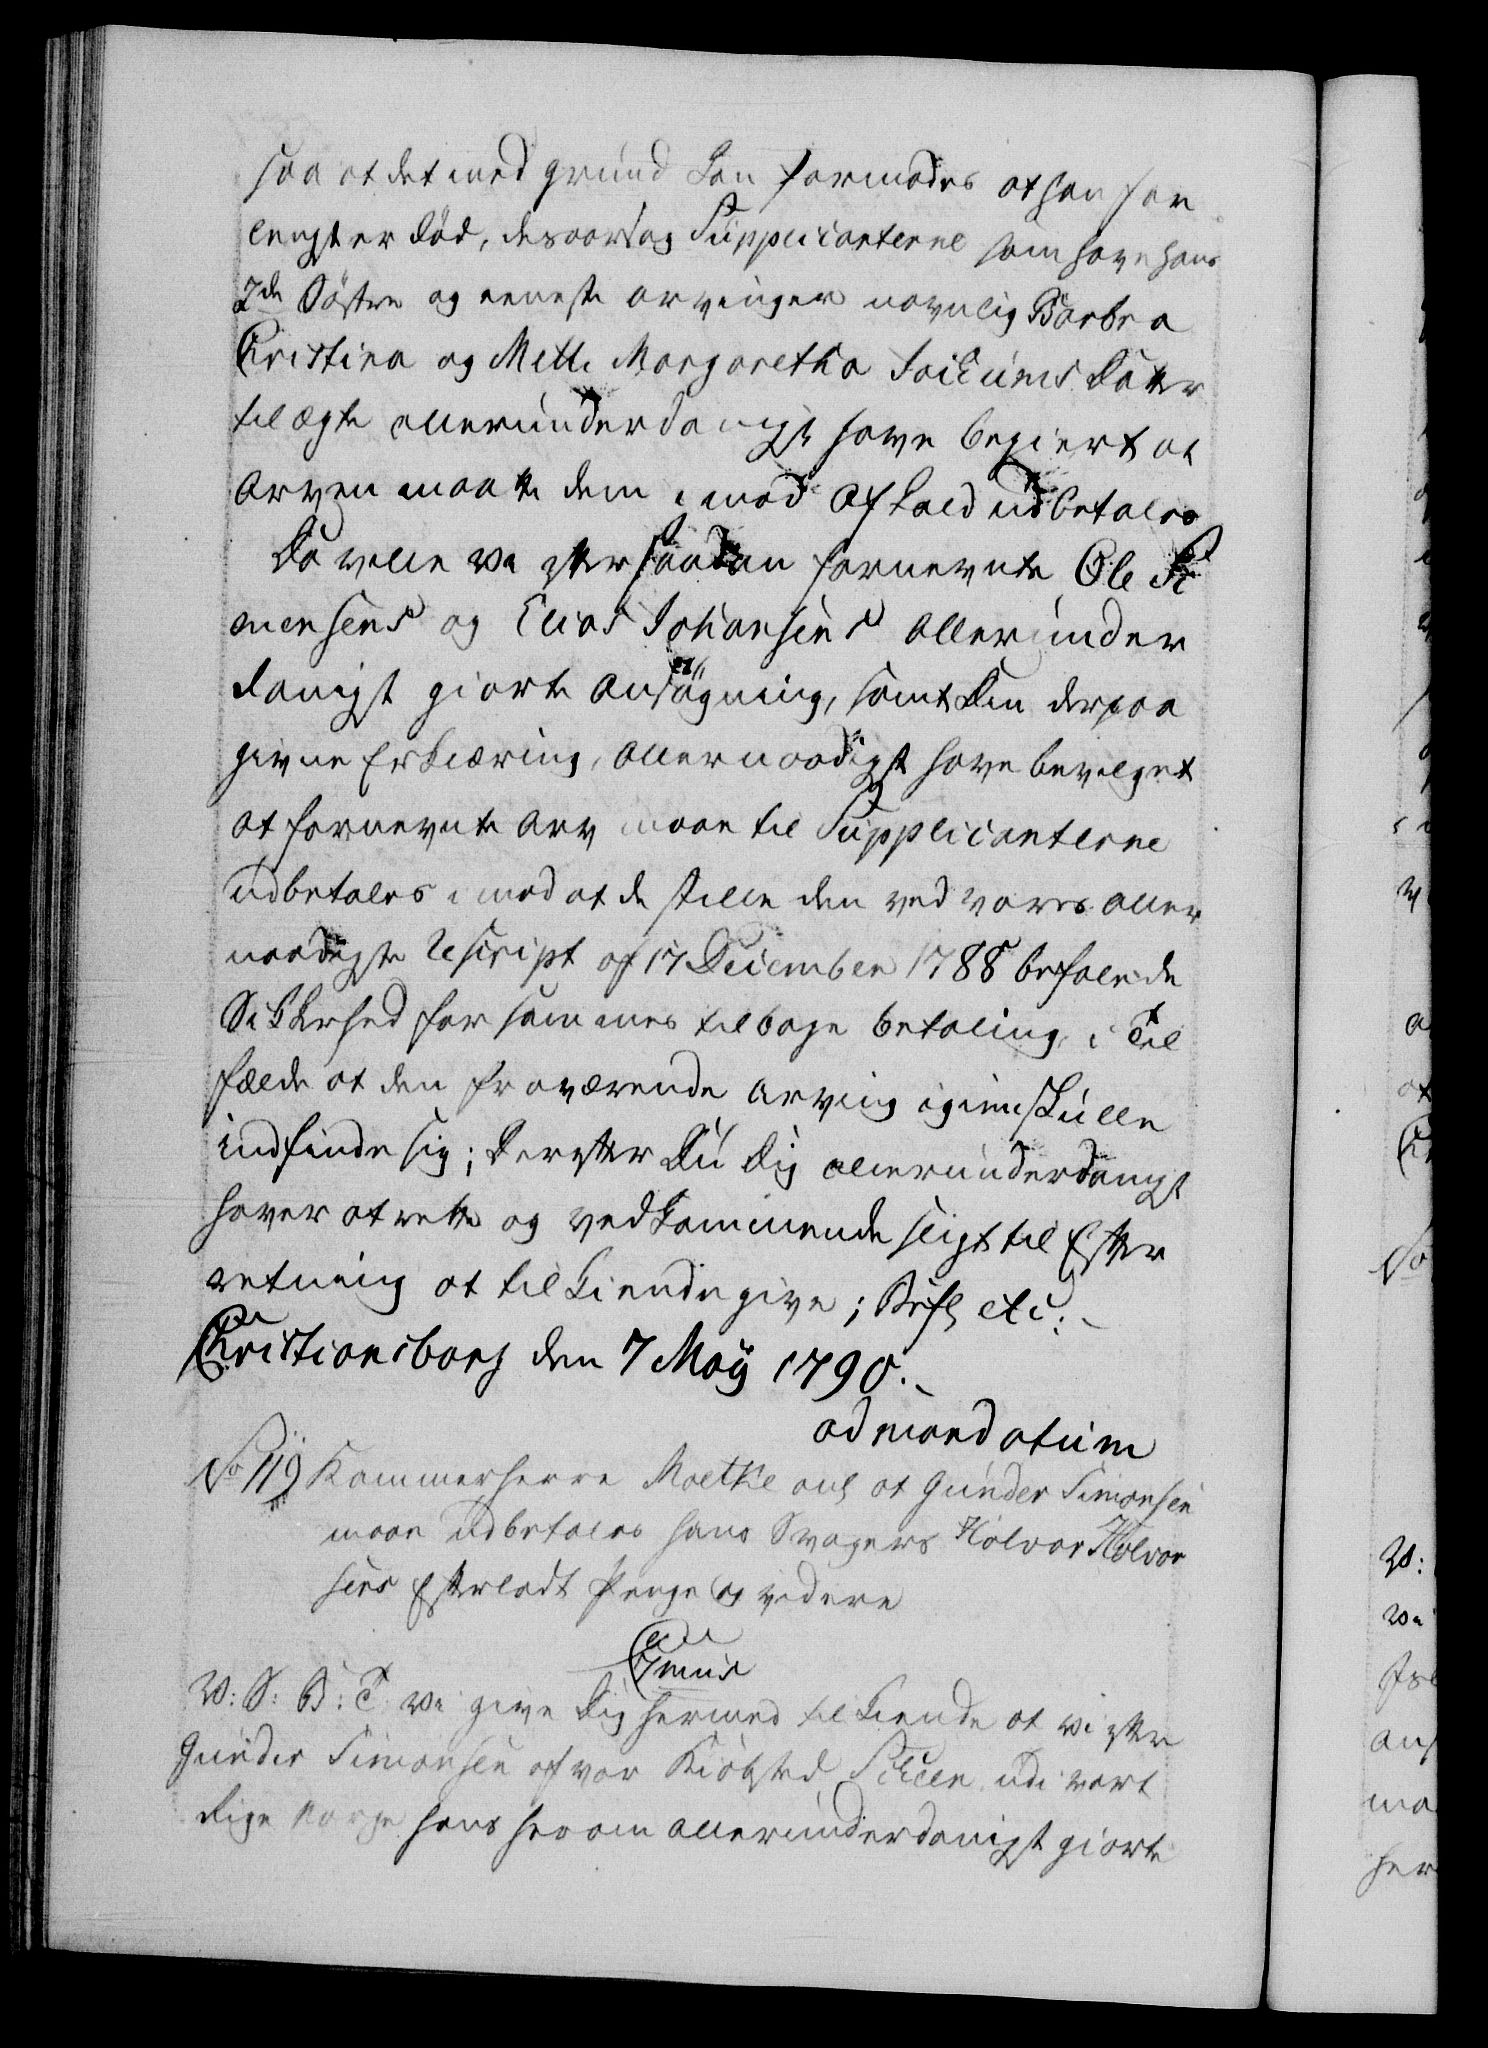 saa at det med grund kan formodes at han for
lengst er død, desaarsag Supplicanterne som have hans
2de Søstre og eeneste arvinger navnlig Barbra
Christina og Mette Margaretha Joikums Døtter
til ægte allerunderdanigst have begiert at
Arven maatte dem imod afkald udbetales
Da ville vi efter saadan fornevnte Ole Si
mensens og Elias Johansens allerunder
danigst giorte ansøgning, samt Din derpaa
givne Erklæring, allernaadigst have bevilget
at fornevnte Arv maae til Supplicanterne
udbetales imod at de stille den ved vores aller
naadigste Rescript af 17 December 1788 befalede
Sikkerhed for sammes tilbage betaling, i Til
fælde at den fraværende arving igien skulle
indfinde sig; Derefter Du Dig allerunderdanigst
haver at rette og vedkommende sligt til Efter
retning at tilkiendegive; Befh etc:
Christiansborg den 7 Maÿ 1790.
ad mandatum
No 119 Kammerherre Moltke anl at Gunder Simonsen
maae udbetales hans Svogers Holvor Holvor
sens Efterladt Penge og videre
C 7mus
W: S: B: T: Vi give Dig hermed tilkiende at vi efter
Gunder Simonsen af vor Kiøbsted Scheen udi vort
Rige Norge hans herom allerunderdanigst giorte